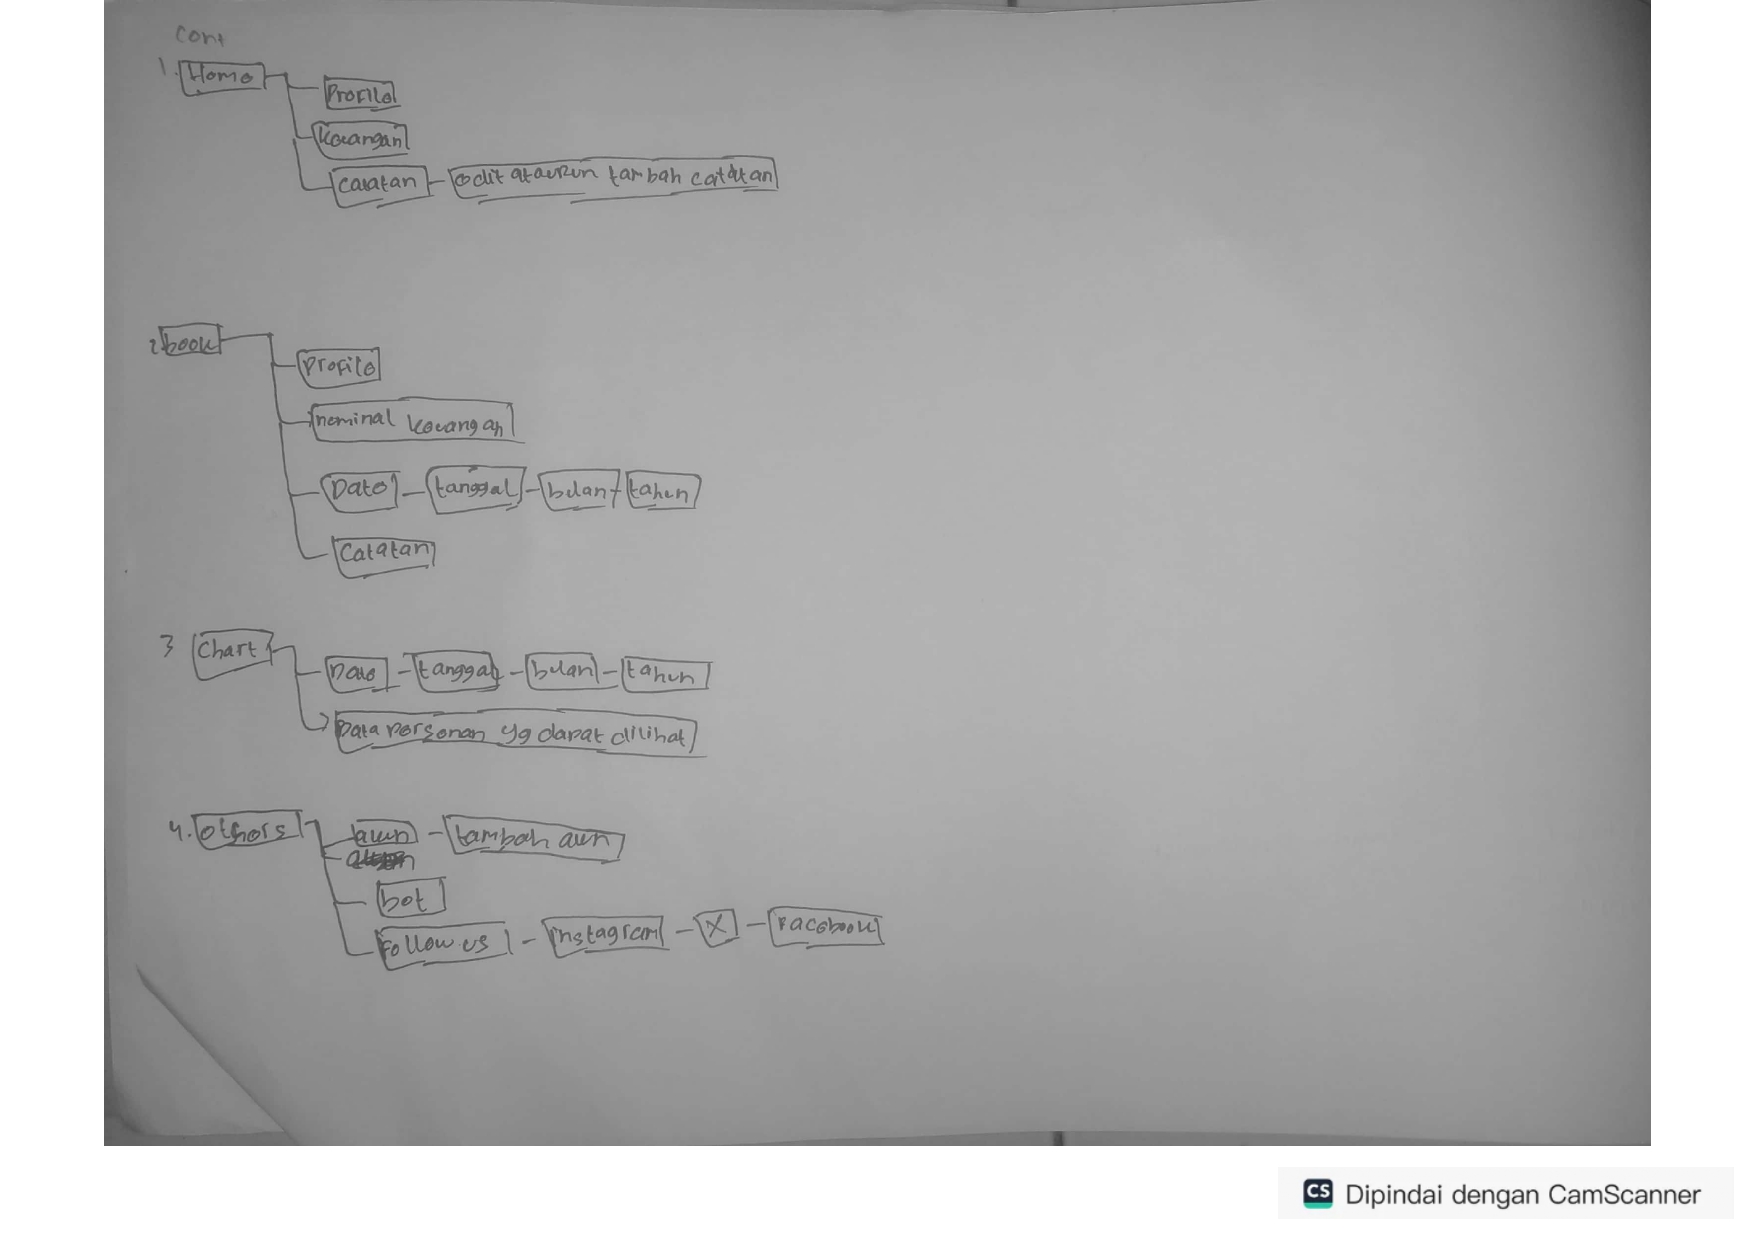 Cont
1. Home
Profile
Keuangan
Catatan
edit ataupun tambah catatan
2. book
Profile
nominal keuangan
Date tanggal bulan tahun
Catatan
3 Chart
Date tanggal bulan tahun
Data persenan yg dapat dilihat
4. others
akun tambah akun
bot
Follow us instagram X Facebook
CS Dipindai dengan CamScanner